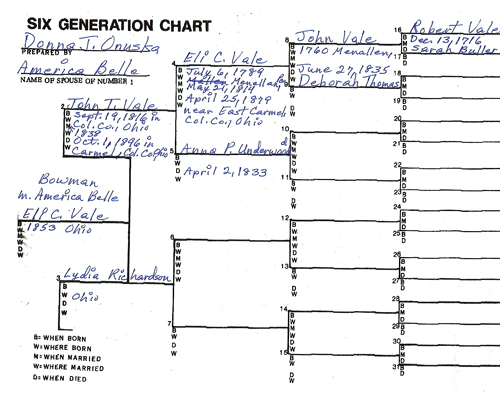 SIX GENERATION CHART
Donna J. Onuska
PREPARED BY
America Belle
NAME OF SPOUSE OF NUMBER 1
2
John T. Vale
B
W
M
D
W
Sept. 19, 1816 in
Col. Co., Ohio
1838
Oct. 1, 1896 in
Carmel, Col. Co, Ohio
Bowman
m. America Belle
Elf C. Vale
B
W
M
W
D
W
1853 Ohio
3
Lydia Richardson
B
W
D
W
Ohio
B= WHEN BORN
W= WHERE BORN
M= WHEN MARRIED
W= WHERE MARRIED
D= WHEN DIED
4
Eli C. Vale
B
W
M
W
D
W
July 6, 1789
Menallen, Pa
May 21, 1814
April 25, 1879
near East Carmel
Col. Co., Ohio
5
Anna P. Underwood
B
W
D
W
April 2, 1833
6
B
W
M
W
D
W
7
B
W
D
W
8
John Vale
B
W
M
D
W
1760 Menallen,
June 27, 1835
Deborah Thomas
9
B
W
D
W
10
B
W
M
D
W
11
B
W
D
W
12
B
W
M
D
W
13
B
W
D
W
14
B
W
M
D
W
15
B
W
D
W
16
Robert Vale
B
M
D
Dec. 13, 1716
Sarah Buller
17
B
D
18
B
M
D
19
B
D
20
B
M
D
21
B
D
22
B
M
D
23
B
D
24
B
M
D
25
B
D
26
B
M
D
27
B
D
28
B
M
D
29
B
D
30
B
M
D
31
B
D